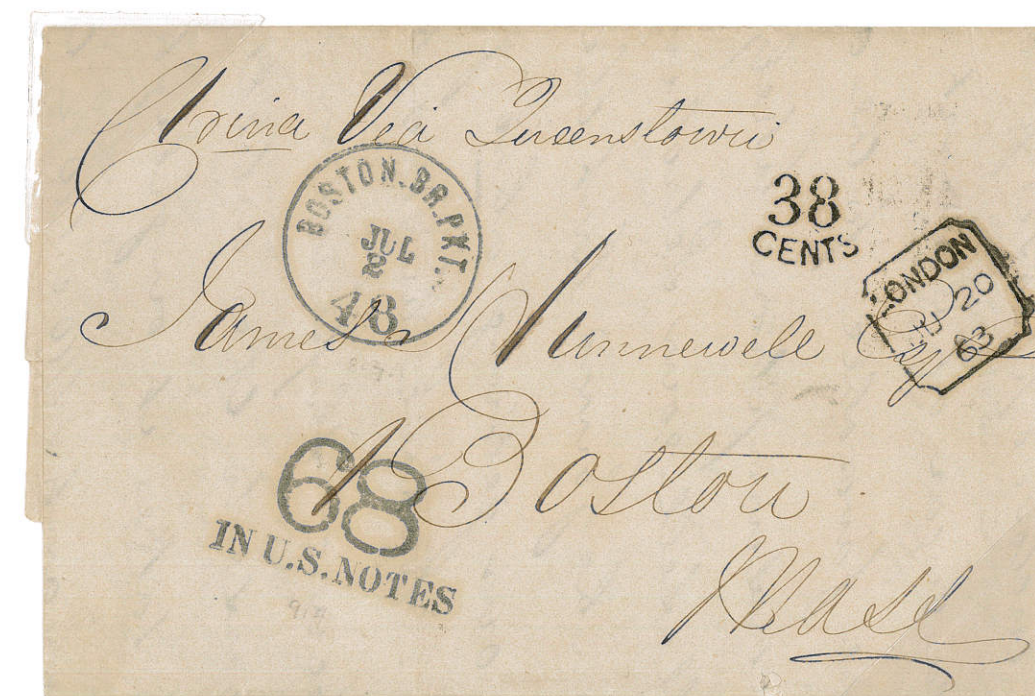 China Via Queenstown
BOSTON.BR.PKT.
JUL
2
48
38
CENTS
LONDON
JU 20
63
James Hunnewell Esq
68
IN U.S.NOTES
Boston
Mass